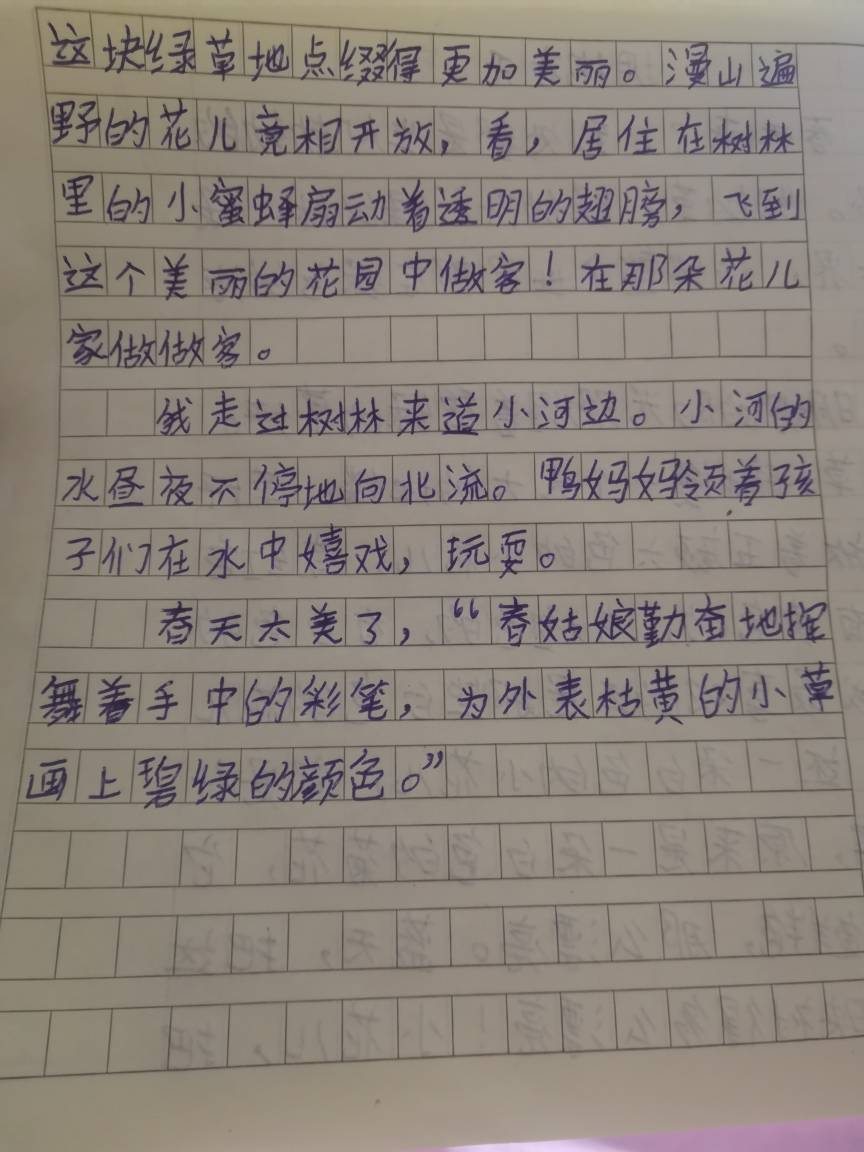 这块绿草地点缀得更加美丽。漫山遍
野的花儿竞相开放,看,居住在树林
里的小蜜蜂扇动着透明的翅膀,飞到
这个美丽的花园中做客!在那朵花儿
家做做客。
我走过树林来道小河边。小河的
水昼夜不停地向北流。鸭妈妈领着孩
子们在水中嬉戏,玩耍。
春天太美了,“春姑娘勤奋地挥
舞着手中的彩笔,为外表枯黄的小草
画上碧绿的颜色。”